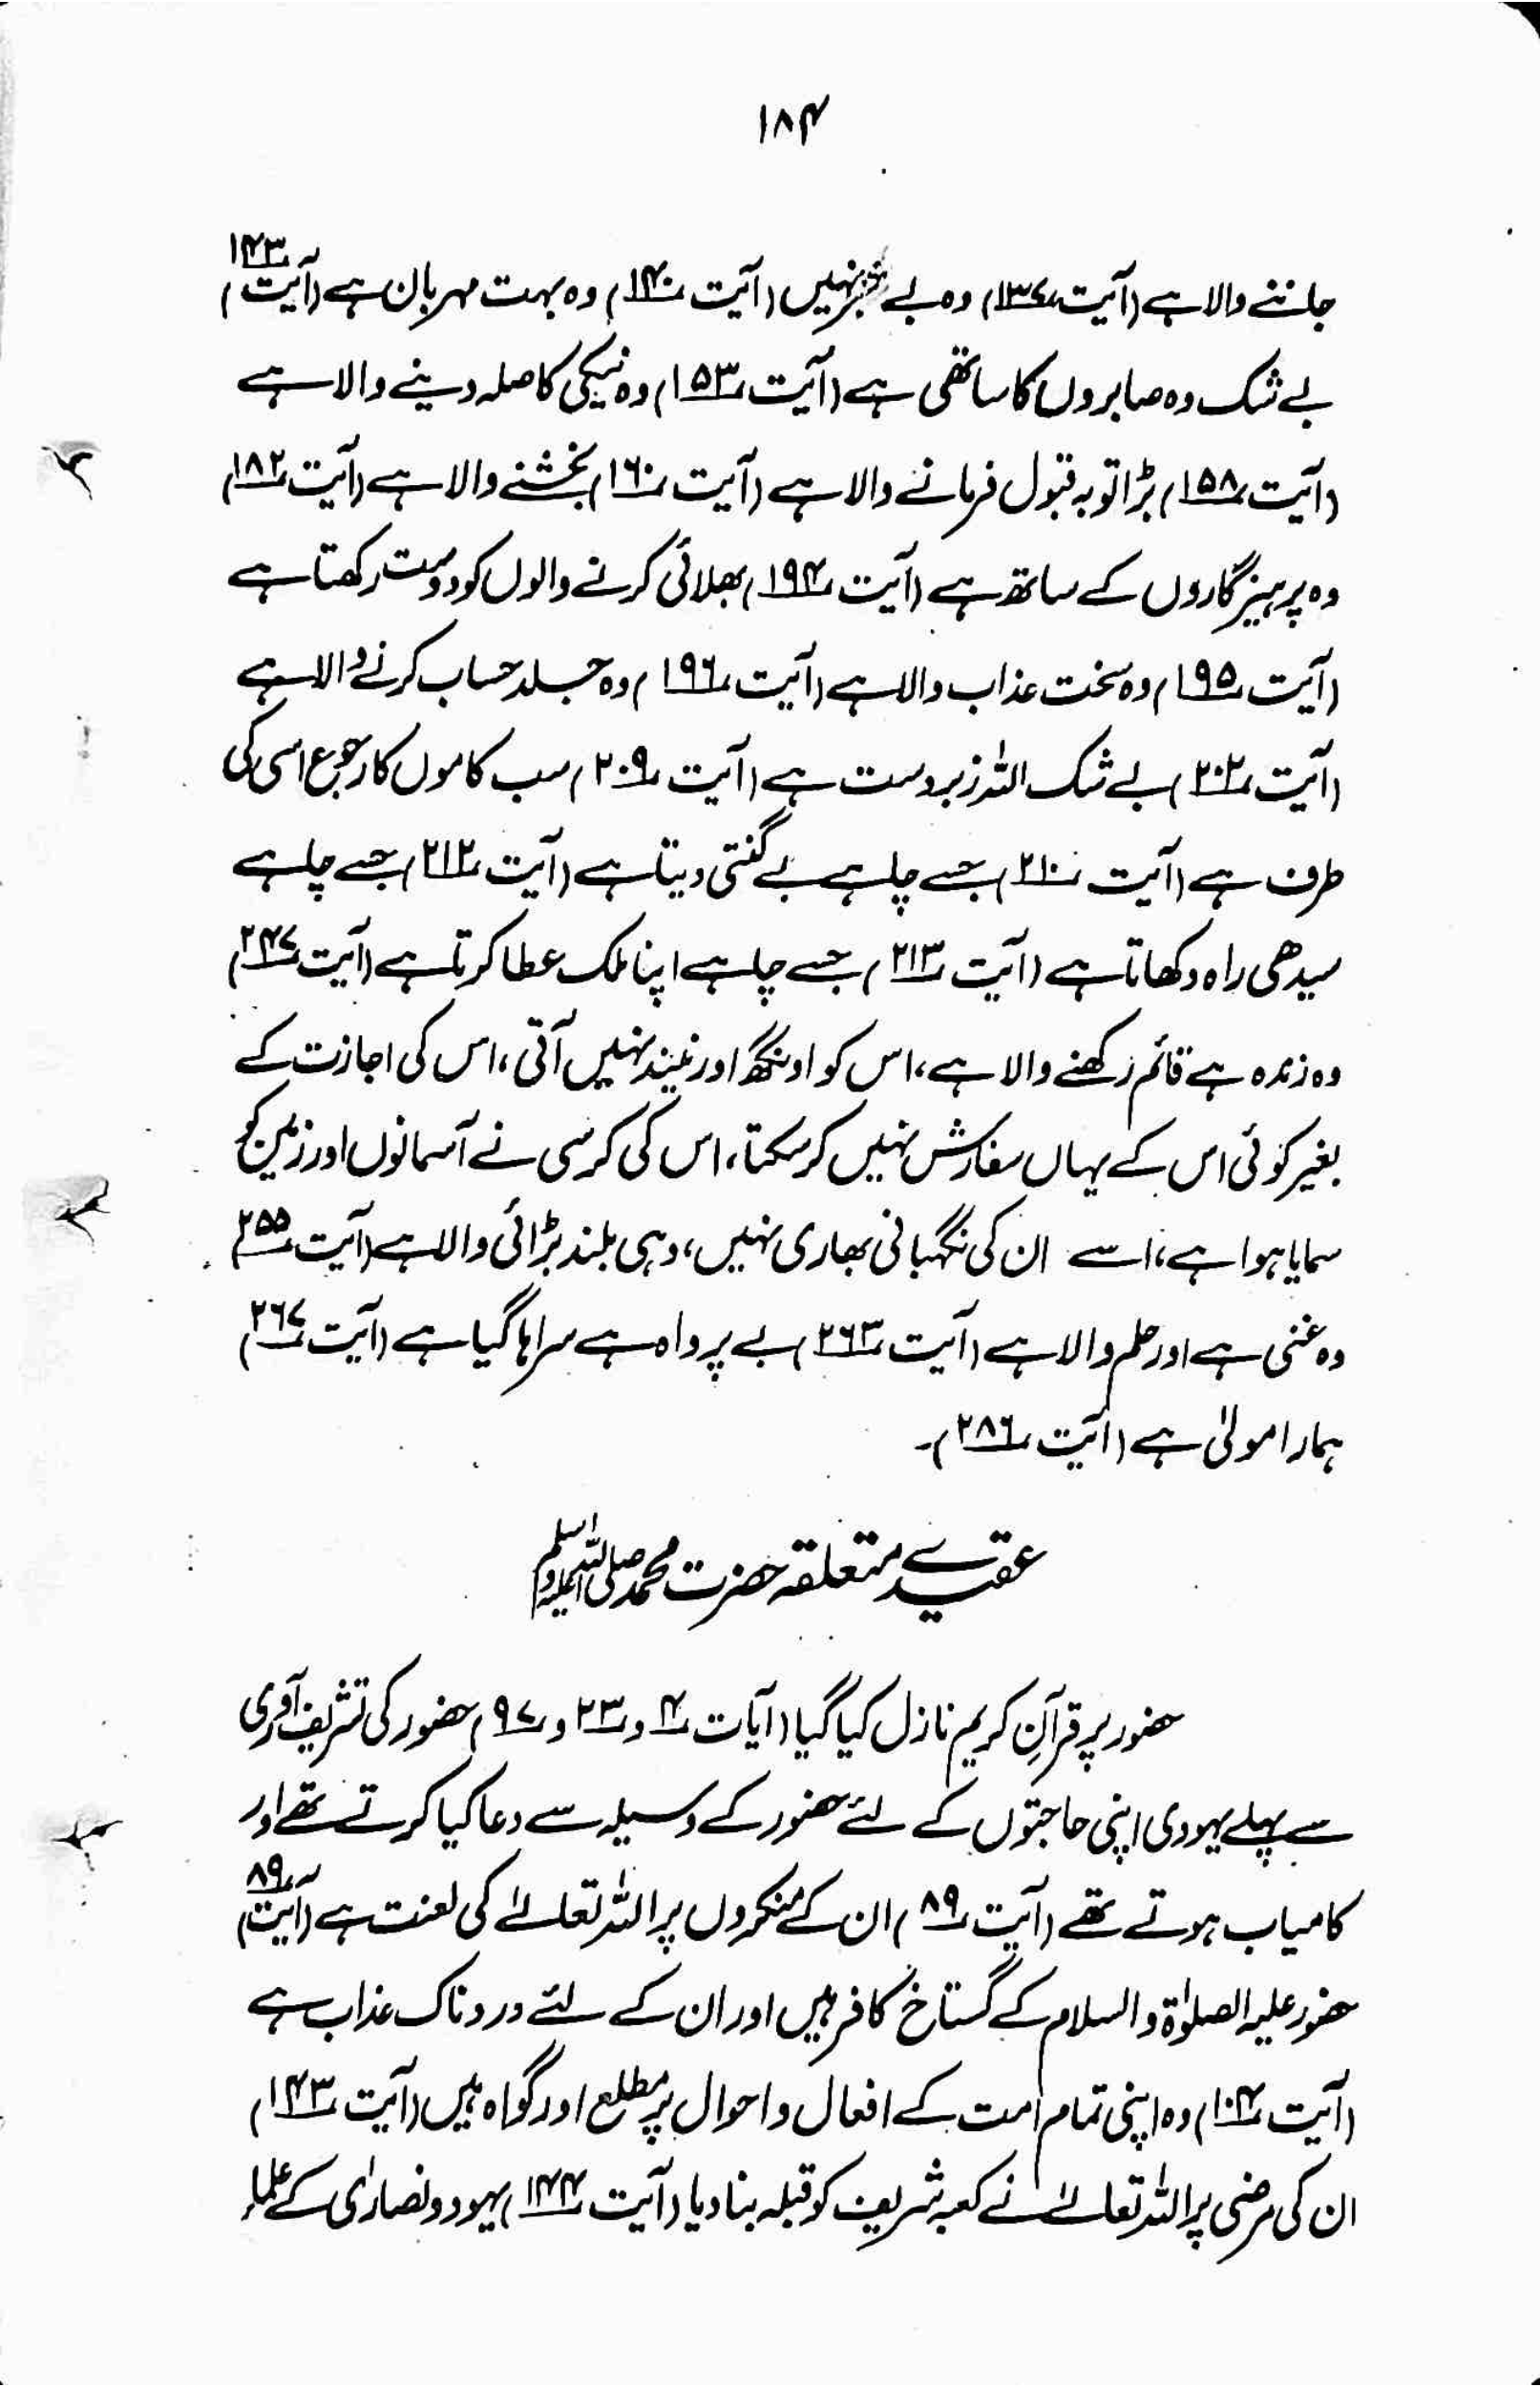 ۱۸۴
جاننے والا ہے (آیت ۱۳۷) وہ بے خبر نہیں (آیت ۱۴۰) وہ بہت مہربان ہے (آیت ۱۴۳)
بے شک وہ صابروں کا ساتھی ہے (آیت ۱۵۳) وہ نیکی کا صلہ دینے والا ہے
(آیت ۱۵۸) بڑا توبہ قبول فرمانے والا ہے (آیت ۱۶۰) بخشنے والا ہے (آیت ۱۸۲)
وہ پرہیزگاروں کے ساتھ ہے (آیت ۱۹۴) بھلائی کرنے والوں کو دوست رکھتا ہے
(آیت ۱۹۵) وہ سخت عذاب والا ہے (آیت ۱۹۶) وہ جلد حساب کرنے والا ہے
(آیت ۲۰۲) بے شک اللہ زبردست ہے (آیت ۲۰۹) سب کاموں کا رجوع اسی کی
طرف ہے (آیت ۲۱۰) جسے چاہے بے گنتی دیتا ہے (آیت ۲۱۲) جسے چاہے
سیدھی راہ دکھاتا ہے (آیت ۲۱۳) جسے چاہے اپنا ملک عطا کرتا ہے (آیت ۲۴۷)
وہ زندہ ہے قائم رکھنے والا ہے، اس کو اونگھ اور نیند نہیں آتی، اس کی اجازت کے
بغیر کوئی اس کے یہاں سفارش نہیں کر سکتا، اس کی کرسی نے آسمانوں اور زمین کو
سمایا ہوا ہے، اسے ان کی نگہبانی بھاری نہیں، وہی بلند بڑائی والا ہے (آیت ۲۵۵)
وہ غنی ہے اور حلم والا ہے (آیت ۲۶۳) بے پرواہ ہے سراہا گیا ہے (آیت ۲۶۷)
ہمارا مولیٰ ہے (آیت ۲۸۶)۔
عقیدے متعلقہ حضرت محمد صلی اللہ علیہ وسلم
حضور پر قرآنِ کریم نازل کیا گیا (آیات ۴ و ۲۳ و ۹۷) حضور کی تشریف آوری
سے پہلے یہودی اپنی حاجتوں کے لئے حضور کے وسیلہ سے دعا کیا کرتے تھے اور
کامیاب ہوتے تھے (آیت ۸۹) ان کے منکروں پر اللہ تعالےٰ کی لعنت ہے (آیت ۸۹)
حضور علیہ الصلوٰۃ والسلام کے گستاخ کافر ہیں اور ان کے لئے دردناک عذاب ہے
(آیت ۱۰۴) وہ اپنی تمام امت کے افعال و احوال پر مطلع اور گواہ ہیں (آیت ۱۴۳)
ان کی مرضی پر اللہ تعالےٰ نے کعبہ شریف کو قبلہ بنا دیا (آیت ۱۴۴) یہود و نصاریٰ کے علماء